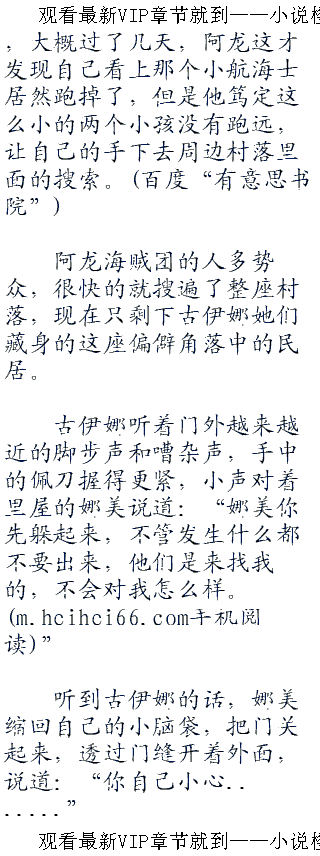 观看最新VIP章节就到——小说检
，大概过了几天，阿龙这才
发现自己看上那个小航海士
居然跑掉了，但是他笃定这
么小的两个小孩没有跑远，
让自己的手下去周边村落里
面的搜索。(百度“有意思书
院”)
阿龙海贼团的人多势
众，很快的就搜遍了整座村
落，现在只剩下古伊娜她们
藏身的这座偏僻角落中的民
居。
古伊娜听着门外越来越
近的脚步声和嘈杂声，手中
的佩刀握得更紧，小声对着
里屋的娜美说道：“娜美你
先躲起来，不管发生什么都
不要出来，他们是来找我
的，不会对我怎么样。
(m.hcihci66.com手机阅
读)”
听到古伊娜的话，娜美
缩回自己的小脑袋，把门关
起来，透过门缝开着外面，
说道：“你自己小心..
.....”
观看最新VIP章节就到——小说检